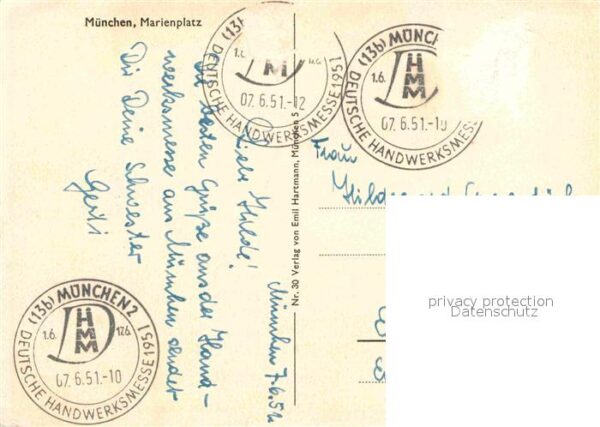 München, Marienplatz
München 7.6.51
Liebe Hilde!
Die besten Grüße aus der Hand-
werksmesse aus München sendet
Dir Deine Schwester
Gerti
Nr. 30 Verlag von Emil Hartmann, München 5
(13b) MÜNCHEN
1.6.
M
07.6.51.-12
DEUTSCHE HANDWERKSMESSE 1951
(13b) MÜNCHEN
1.6.
D
HMM
07.6.51.-10
DEUTSCHE HANDWERKSMESSE
(13b) MÜNCHEN 2
1.6.
D
HMM
17.6.
07.6.51.-10
DEUTSCHE HANDWERKSMESSE 1951
Frau
privacy protection
Datenschutz